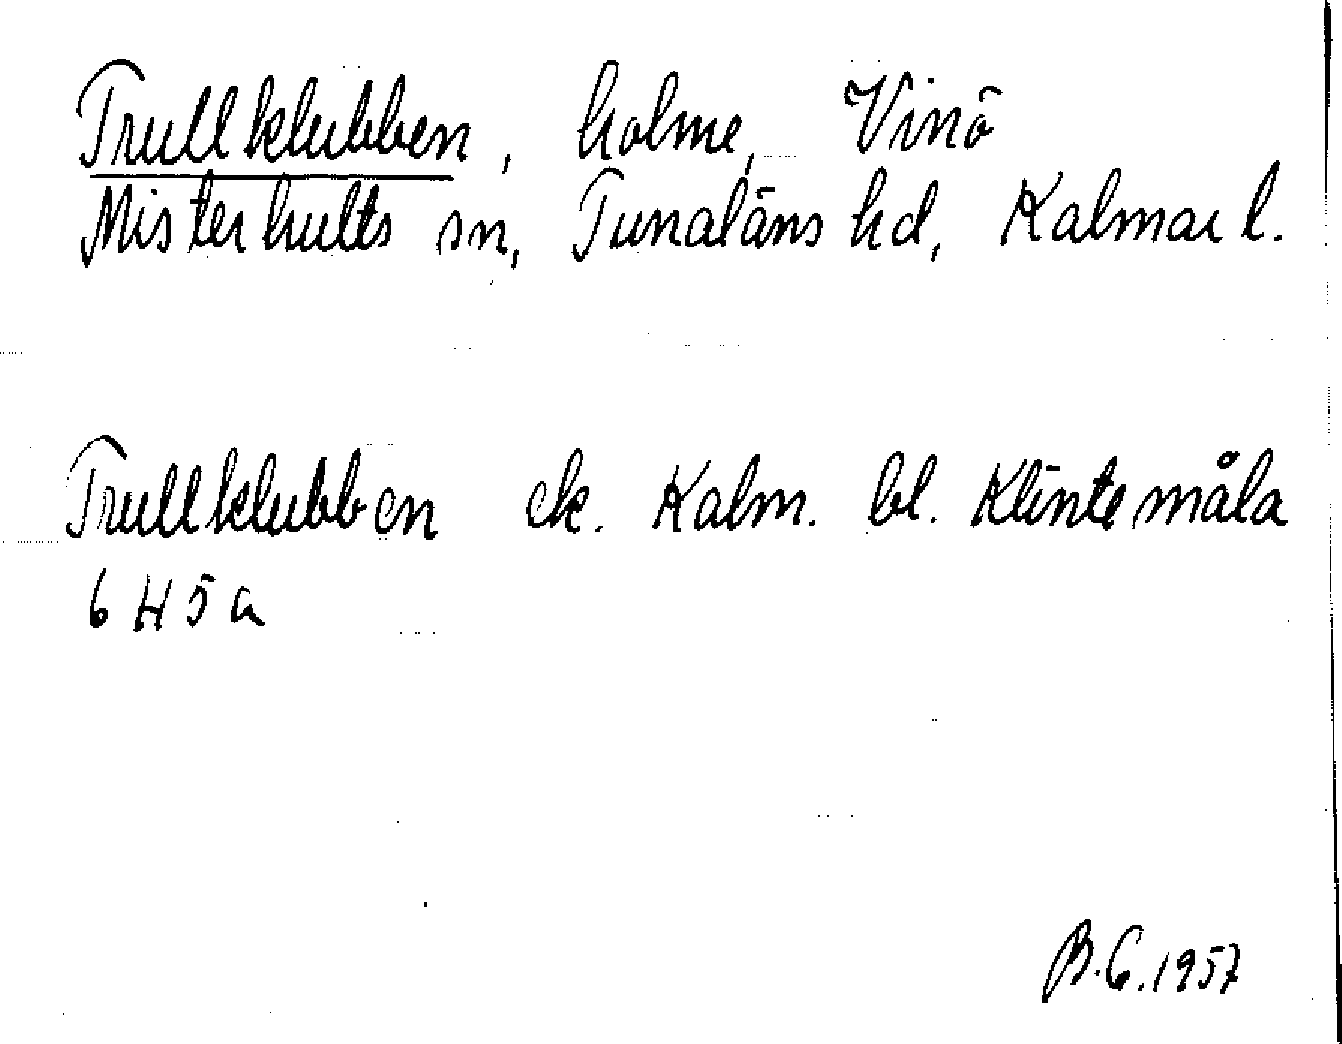 Trullklubben, holme, Vinö
Misterhults sn, Tunaläns hd, Kalmar l.
Trullklubben ek. Kalm. bl. Klintemåla
6 H 5 a
B.G. 1957